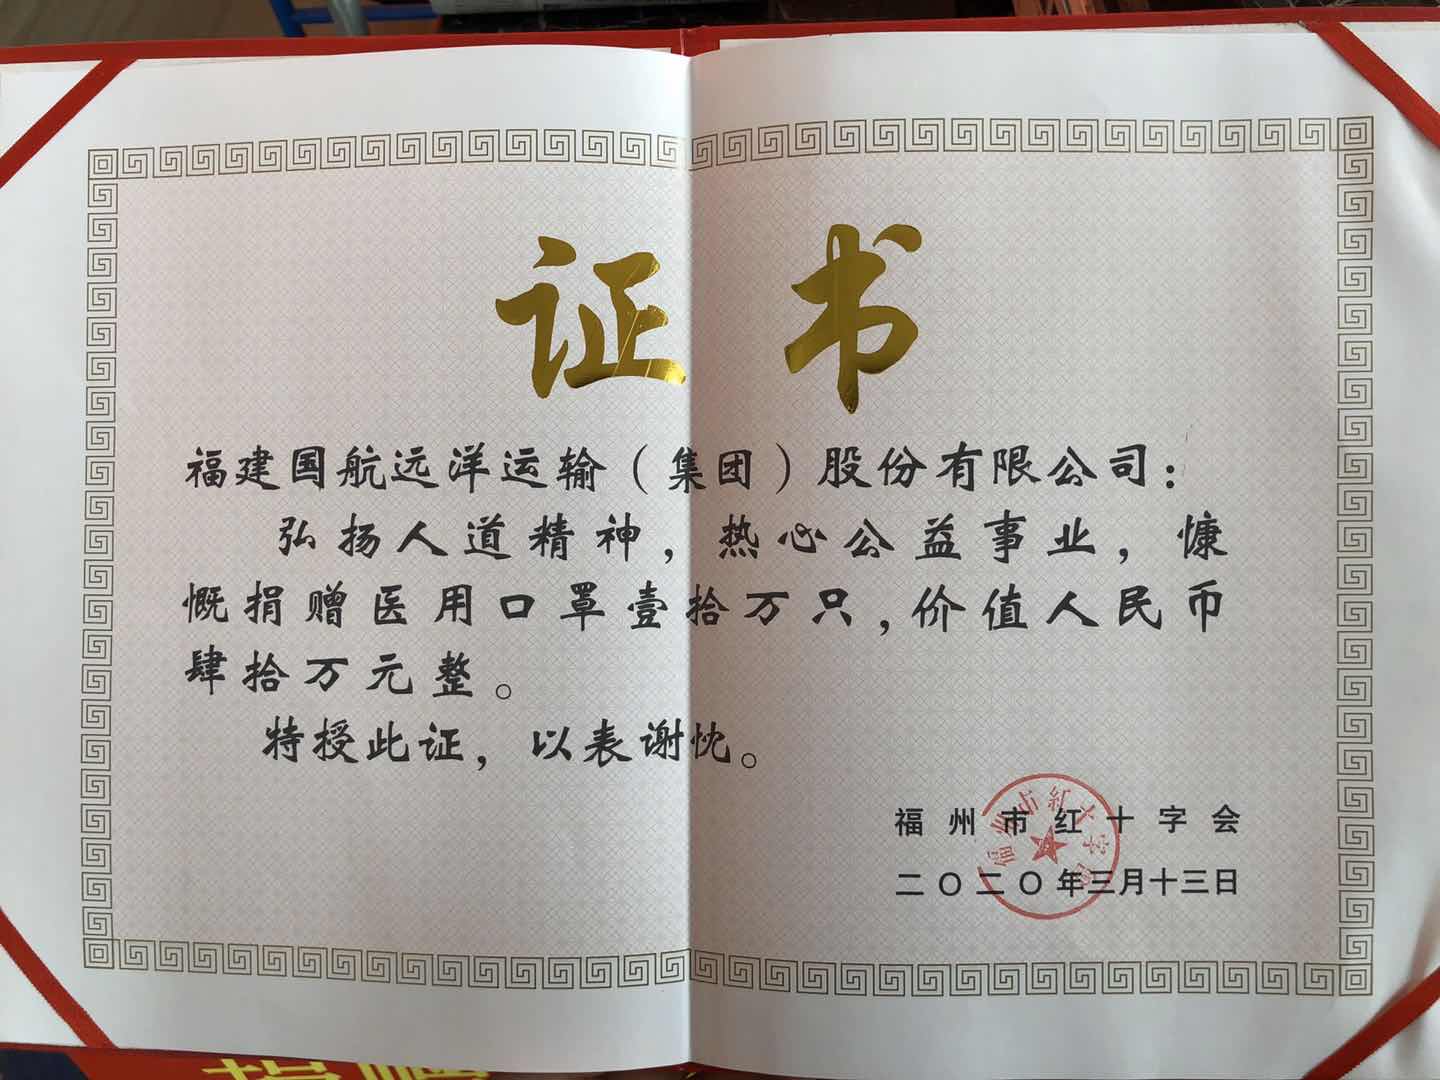 证书
福建国航远洋运输（集团）股份有限公司：
弘扬人道精神，热心公益事业，慷
慨捐赠医用口罩壹拾万只，价值人民币
肆拾万元整。
特授此证，以表谢忱。
福州市红十字会
二〇二〇年三月十三日
福州市红十字会